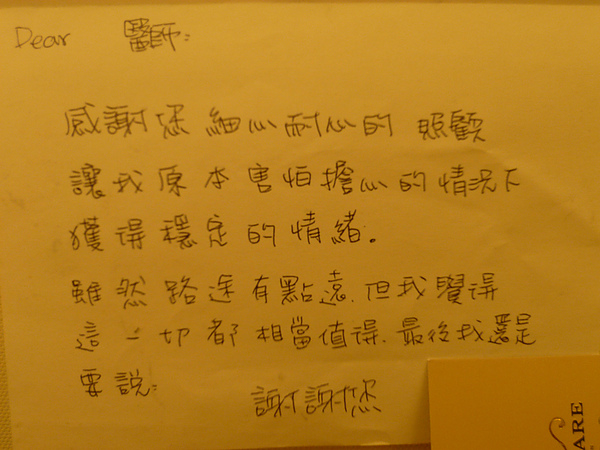 Dear 醫師:
感謝您細心耐心的照顧
讓我原本害怕擔心的情況下
獲得穩定的情緒。
雖然路途有點遠.但我覺得
這一切都相當值得.最後我還是
要說:
謝謝您
ARE